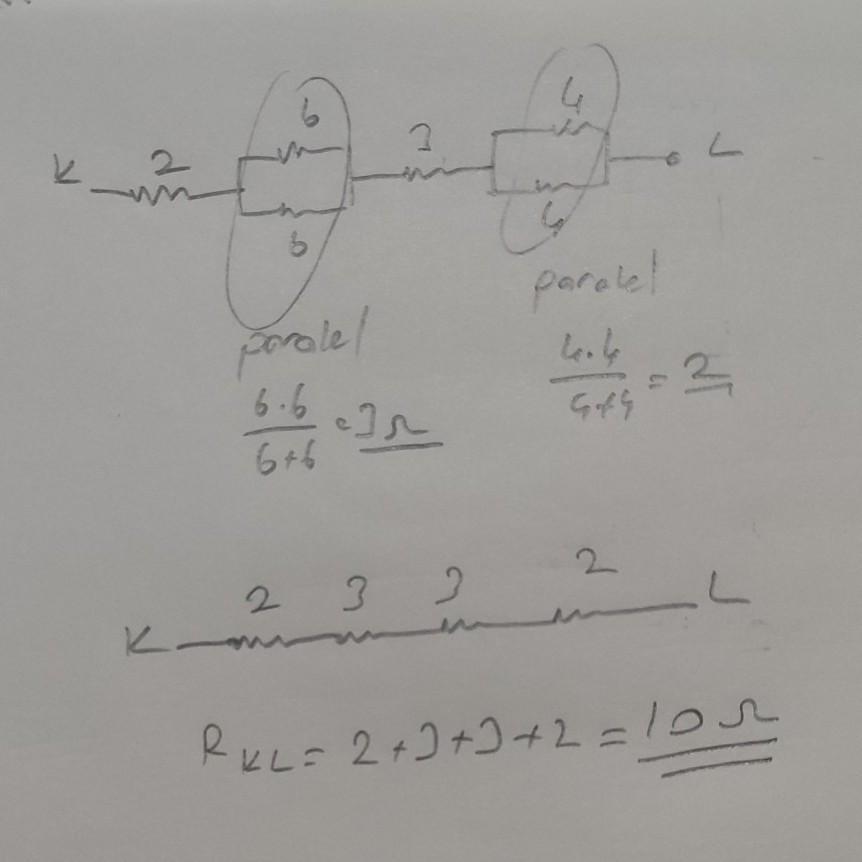 6
4
K 2 3 L
6
4
paralel
paralel
6.6/6+6 = 3Ω
4.4/4+4 = 2
K 2 3 3 2 L
R KL = 2+3+3+2 = 10 Ω